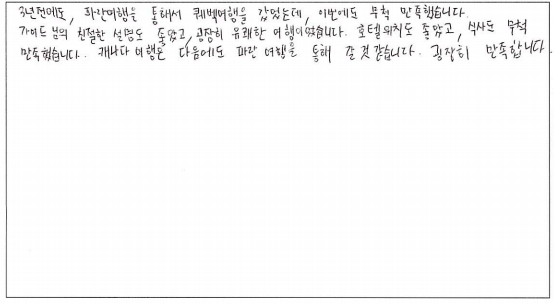 3년전에도, 파란여행을 통해서 퀘벡여행을 갔었는데, 이번에도 무척 만족했습니다.
가이드 님의 친절한 설명도 좋았고, 굉장히 유쾌한 여행이었습니다. 호텔위치도 좋았고, 식사도 무척
만족했습니다. 캐나다 여행은 다음에도 파란 여행을 통해 갈 것 같습니다. 굉장히 만족합니다